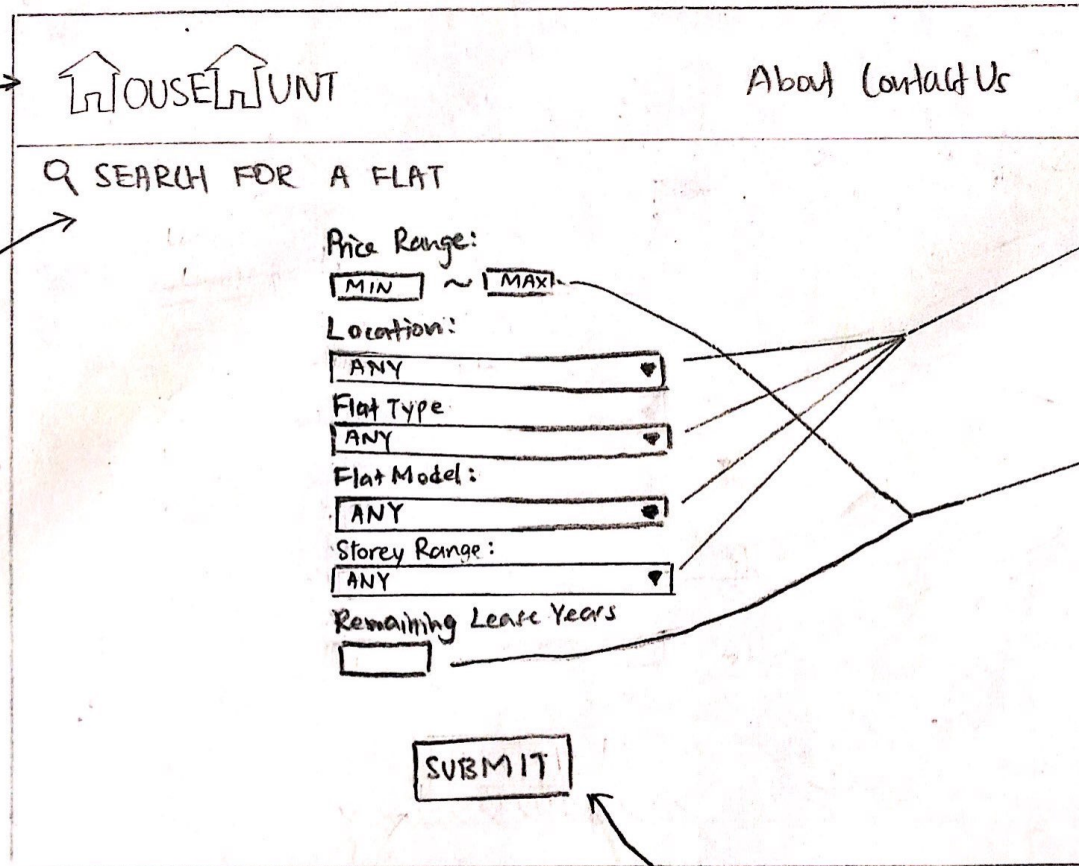 HOUSEHUNT About Contact Us
SEARCH FOR A FLAT
Price Range:
MIN ~ MAX
Location:
ANY
Flat Type
ANY
Flat Model:
ANY
Storey Range:
ANY
Remaining Lease Years
SUBMIT